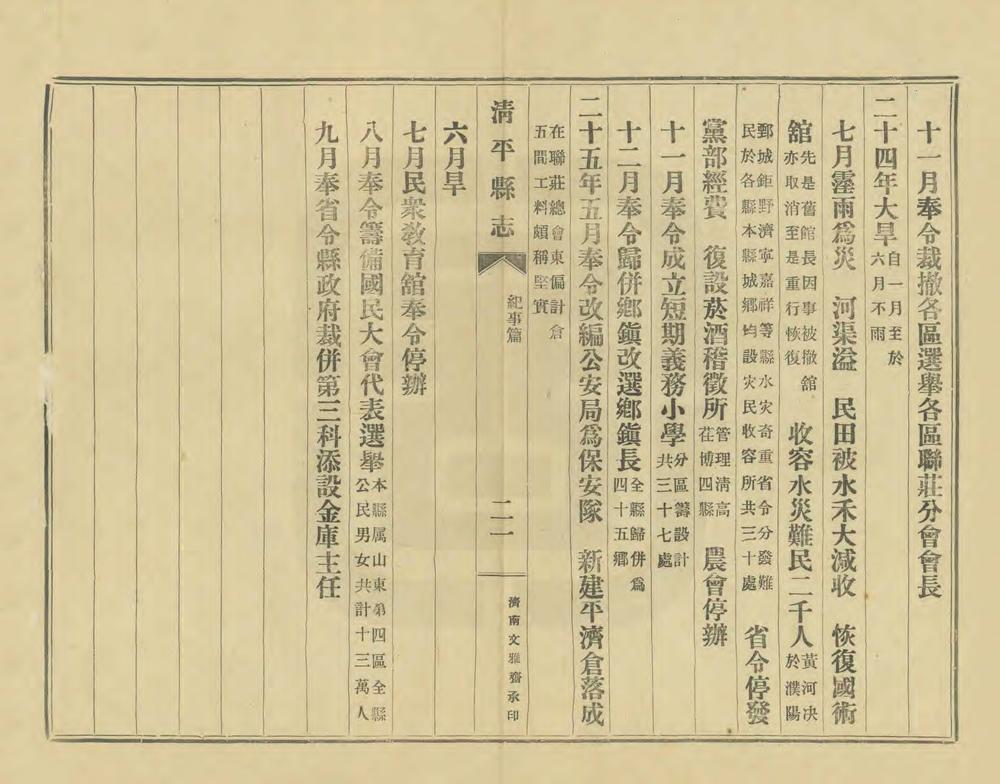 十一月奉令裁撤各區選舉各區聯莊分會會長
二十四年大旱自一月至於六月不雨
七月霪雨爲災　河渠溢　民田被水禾大減收　恢復國術
舘先是舊館長因事被撤舘亦取消至是重行恢復　收容水災難民二千人黃河决於濮陽
鄄城鉅野濟寧嘉祥等縣水灾奇重省令分發難民於各縣本縣城鄉均設灾民收容所共三十處　省令停發
黨部經費　復設菸酒稽徵所管理清高茌博四縣　農會停辦
十一月奉令成立短期義務小學分區籌設計共三十七處
十二月奉令歸併鄉鎮改選鄉鎮長全縣歸併爲四十五鄉
二十五年五月奉令改編公安局爲保安隊　新建平濟倉落成
在聯莊總會東偏計倉五間工料頗稱堅實
清平縣志　紀事篇　二一　濟南文雅齋承印
六月旱
七月民衆教育舘奉令停辦
八月奉令籌備國民大會代表選舉本縣属山東第四區全縣公民男女共計十三萬人
九月奉省令縣政府裁併第三科添設金庫主任